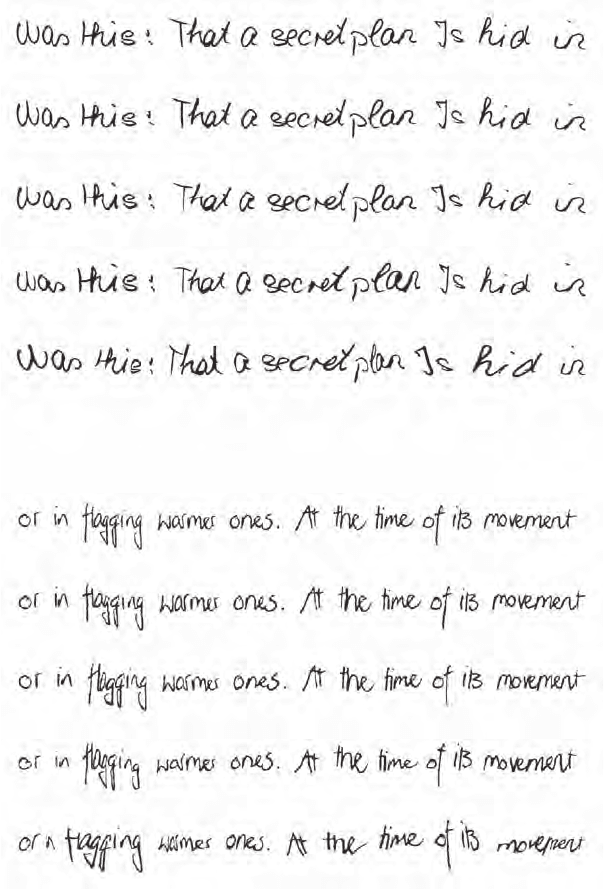 was this: That a secret plan Is hid in
Was this: That a secret plan Is hid in
was this: That a secret plan Is hid in
was this: That a secret plan Is hid in
Was this: That a secret plan Is hid in
or in flagging warmer ones. At the time of its movement
or in flagging warmer ones. At the time of its movement
or in flagging warmer ones. At the time of its movement
or in flagging warmer ones. At the time of its movement
or flagging warmer ones. At the time of its movement